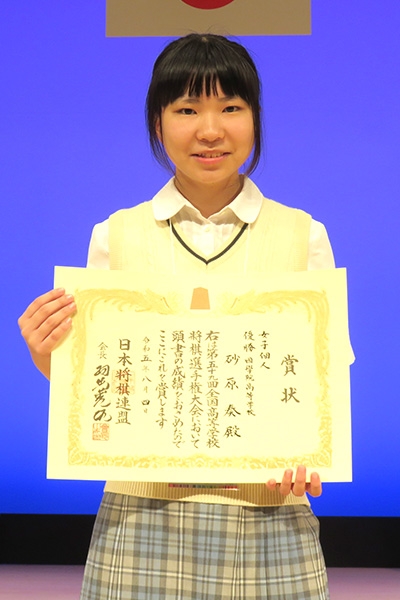 賞状
女子個人
優勝
砂原奏殿
右は第五十九回全国高等学校
将棋選手権大会において
頭書の成績をおさめたので
ここにこれを賞します
令和五年八月四日
日本将棋連盟
会長